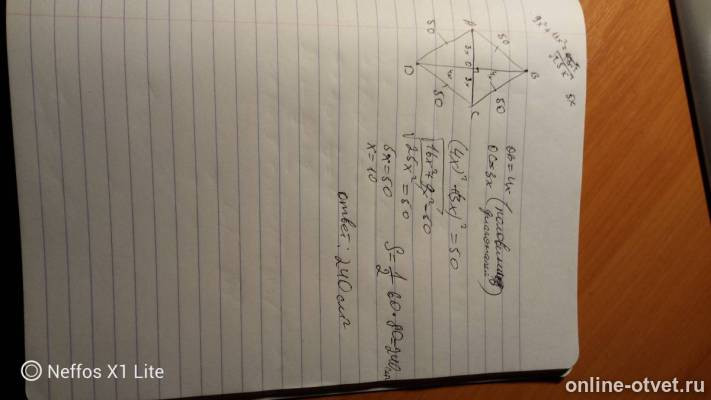 9x² + 16x² =
5x
A
B
C
D
O
50
50
50
50
3x
3x
4x
4x
OB = 4x
OC = 3x (половины диагоналей)
(4x)² + (3x)² = 50
√16x² + 9x² = 50
√25x² = 50
5x = 50
x = 10
S = 1/2 60 · 80 = 240
ответ: 240 см²
Neffos X1 Lite
online-otvet.ru